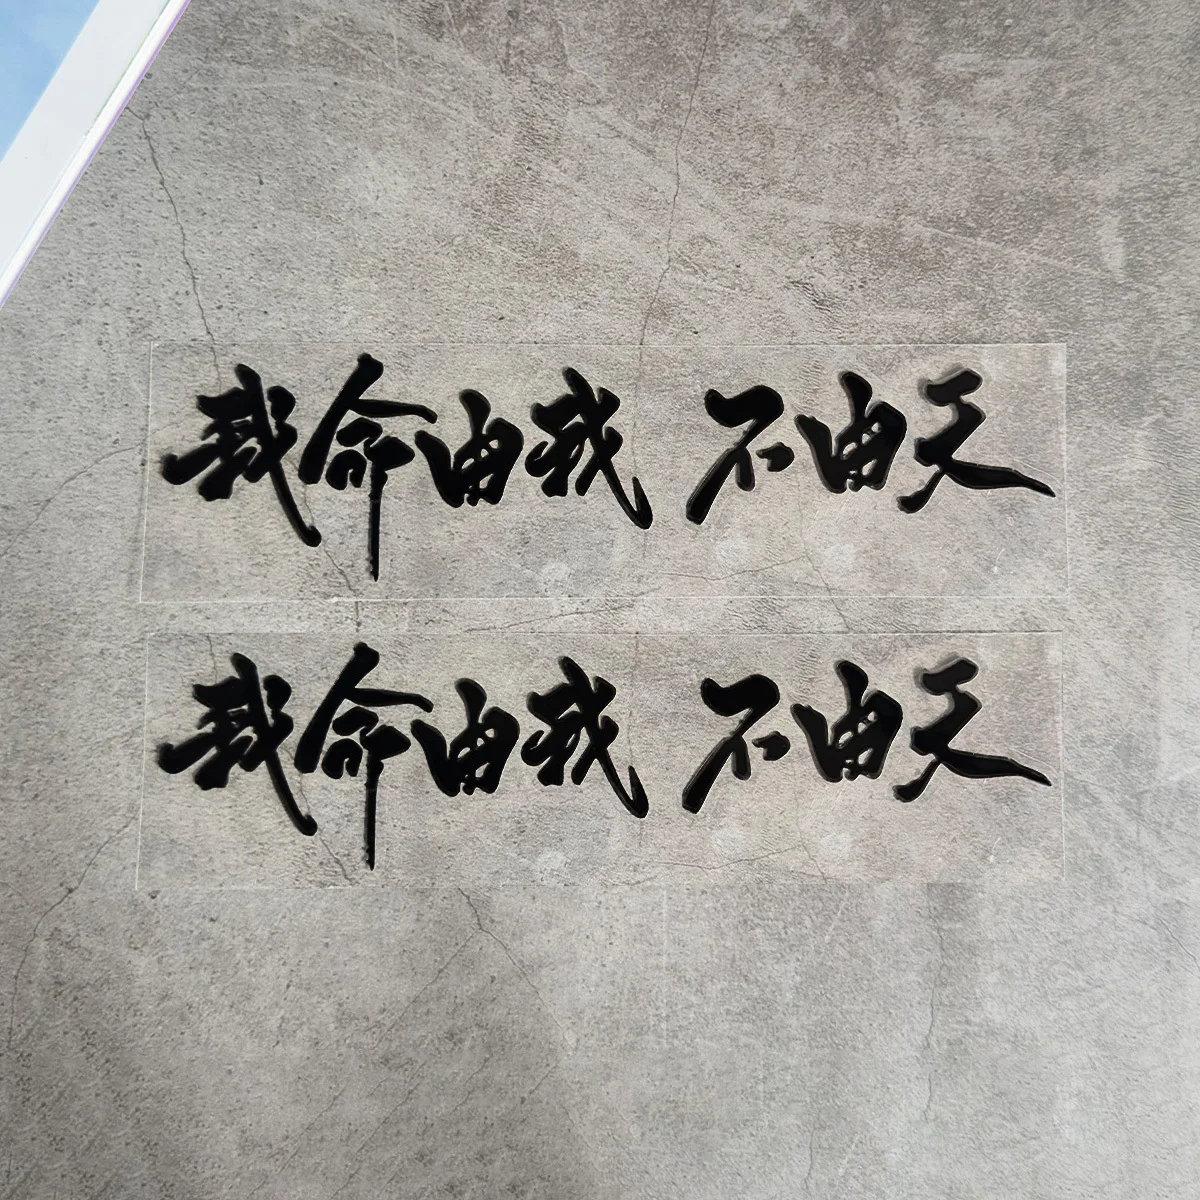 我命由我 不由天
我命由我 不由天